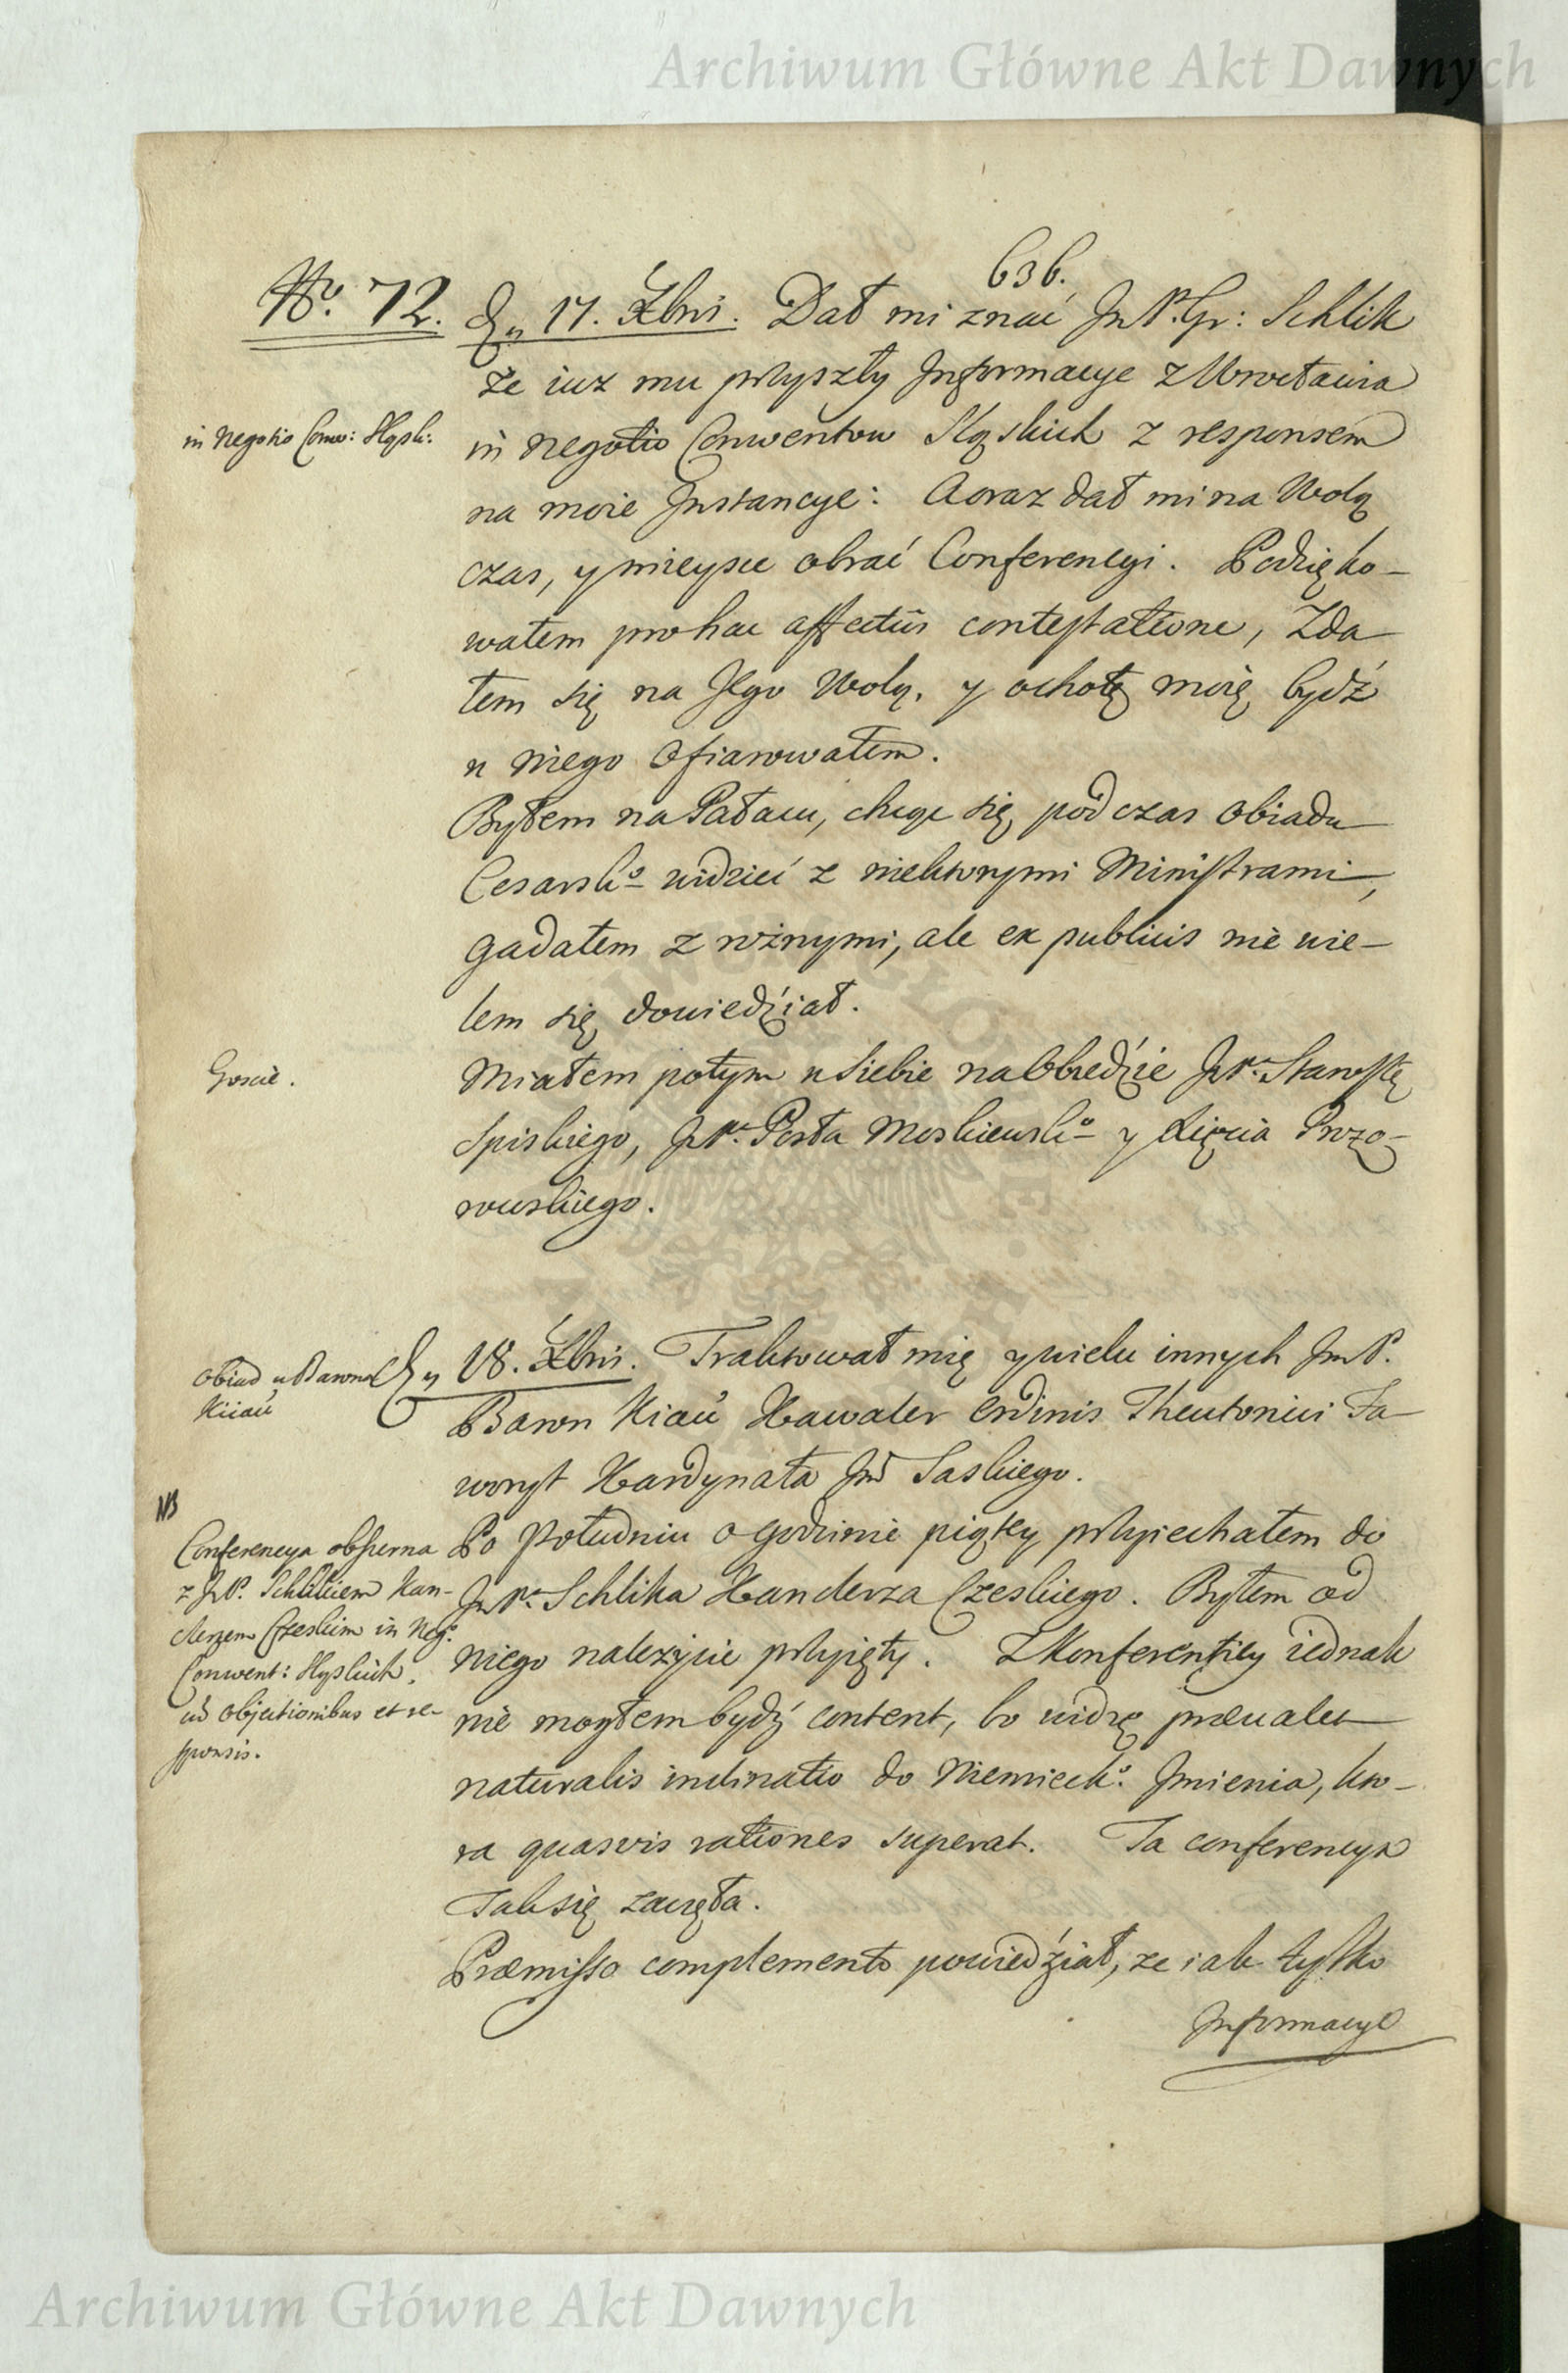 Archiwum Główne Akt Dawnych
636.
No. 72.
Dn 17. Xbris. Dał mi znać Jm P. Gr: Schlik
że iuz mu przyszły Informacye z Wrocławia
in Negotio Conw: Sląsk:
in negotio Conwentow Sląskich z responsem
na moie Instancye: A oraz dał mi na Wolą
czas, y mieysce obrać Conferencyi. Podzięko-
wałem pro hac affectûs contestatione, Zda
łem się na Jego Wolą, y ochotę moię bydź
u niego ofiarowałem.
Byłem na Pałacu, chcąc się pod czas obiadu
Cesarsko widzieć z niektorymi Ministrami,
gadałem z rożnymi, ale ex publicis nie wie-
lem się dowiedział.
Goscie.
Miałem potym u siebie na Obiedzie JPa Starostę
Spiskiego, JPa Posła Moskiewsko y Xięcia Prozo-
rowskiego.
Obiad u Barona
Kiiau
Dn 18. Xbris. Traktował mię y wielu innych Jm P.
Baron Kiau Kawaler Ordinis Theutonici Fa
woryt Kardynała Jmd Saskiego.
NB
Conferencya obszerna
z JP. Schlikiem Kan-
clerzem Czeskim in Nego
Conwent: Sląskich,
cū objectionibus et re-
sponsis.
Po Południu o godzinie piątey przyiechałem do
JmPa Schlika Kanclerza Czeskiego. Byłem od
niego należycie przyięty. Z Konferentiey iednak
nie mogłem bydź content, bo widzę prævalet
naturalis inclinatio do Niemiecko: Imienia, kto-
ra quasvis rationes superat. Ta conferencya
tak się zaczęła.
Præmisso complemento powiedział, ze iak tylko
Informacye
Archiwum Główne Akt Dawnych